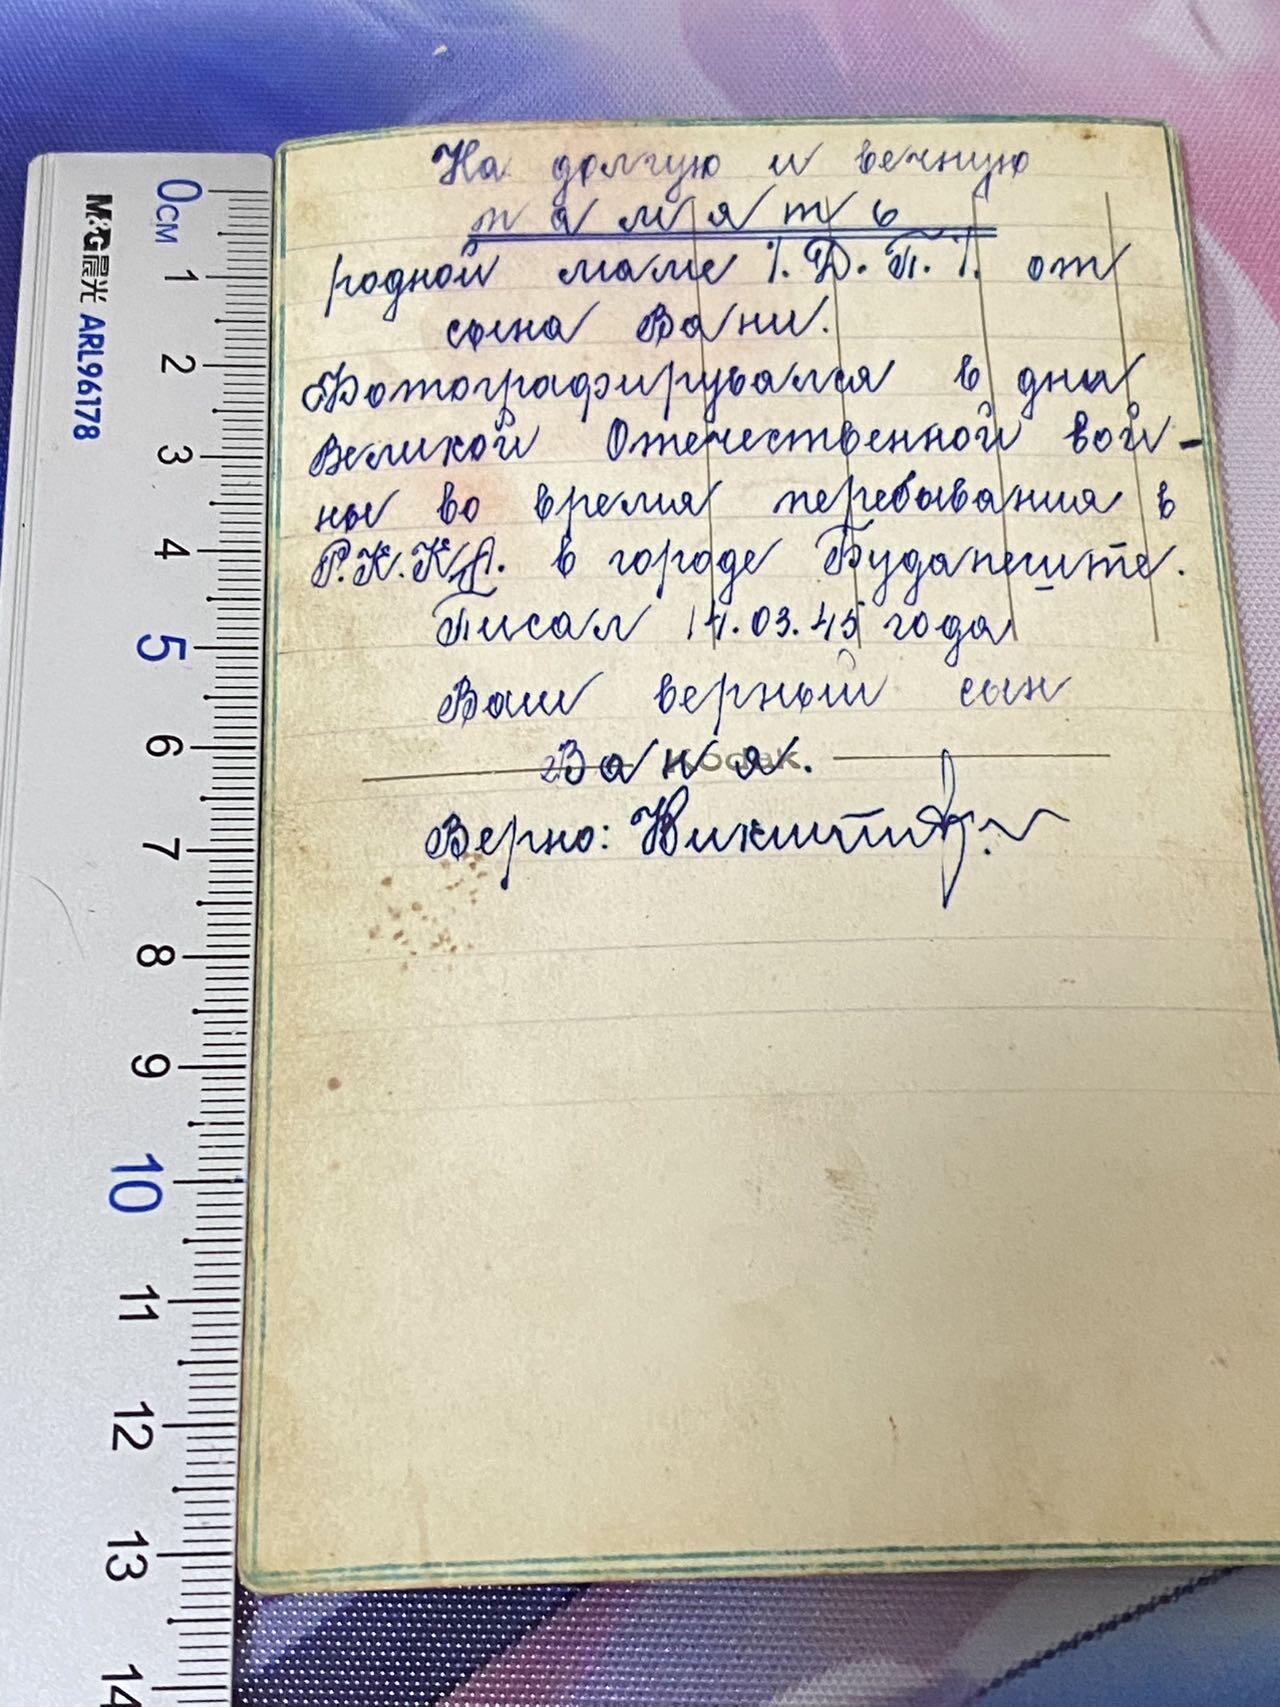 На долгую и вечную
память
родной маме /.Д.П./. от
сына Вани.
Фотографирувался в дни
Великой Отечественной вой-
ны во время перебывания в
Р.К.К.А. в городе Будапеште.
Писал 14.03.45 года
Ваш верный сын
Ваня.
Kodak
Верно:
M&G晨光 ARL96178
0CM
1
2
3
4
5
6
7
8
9
10
11
12
13
14